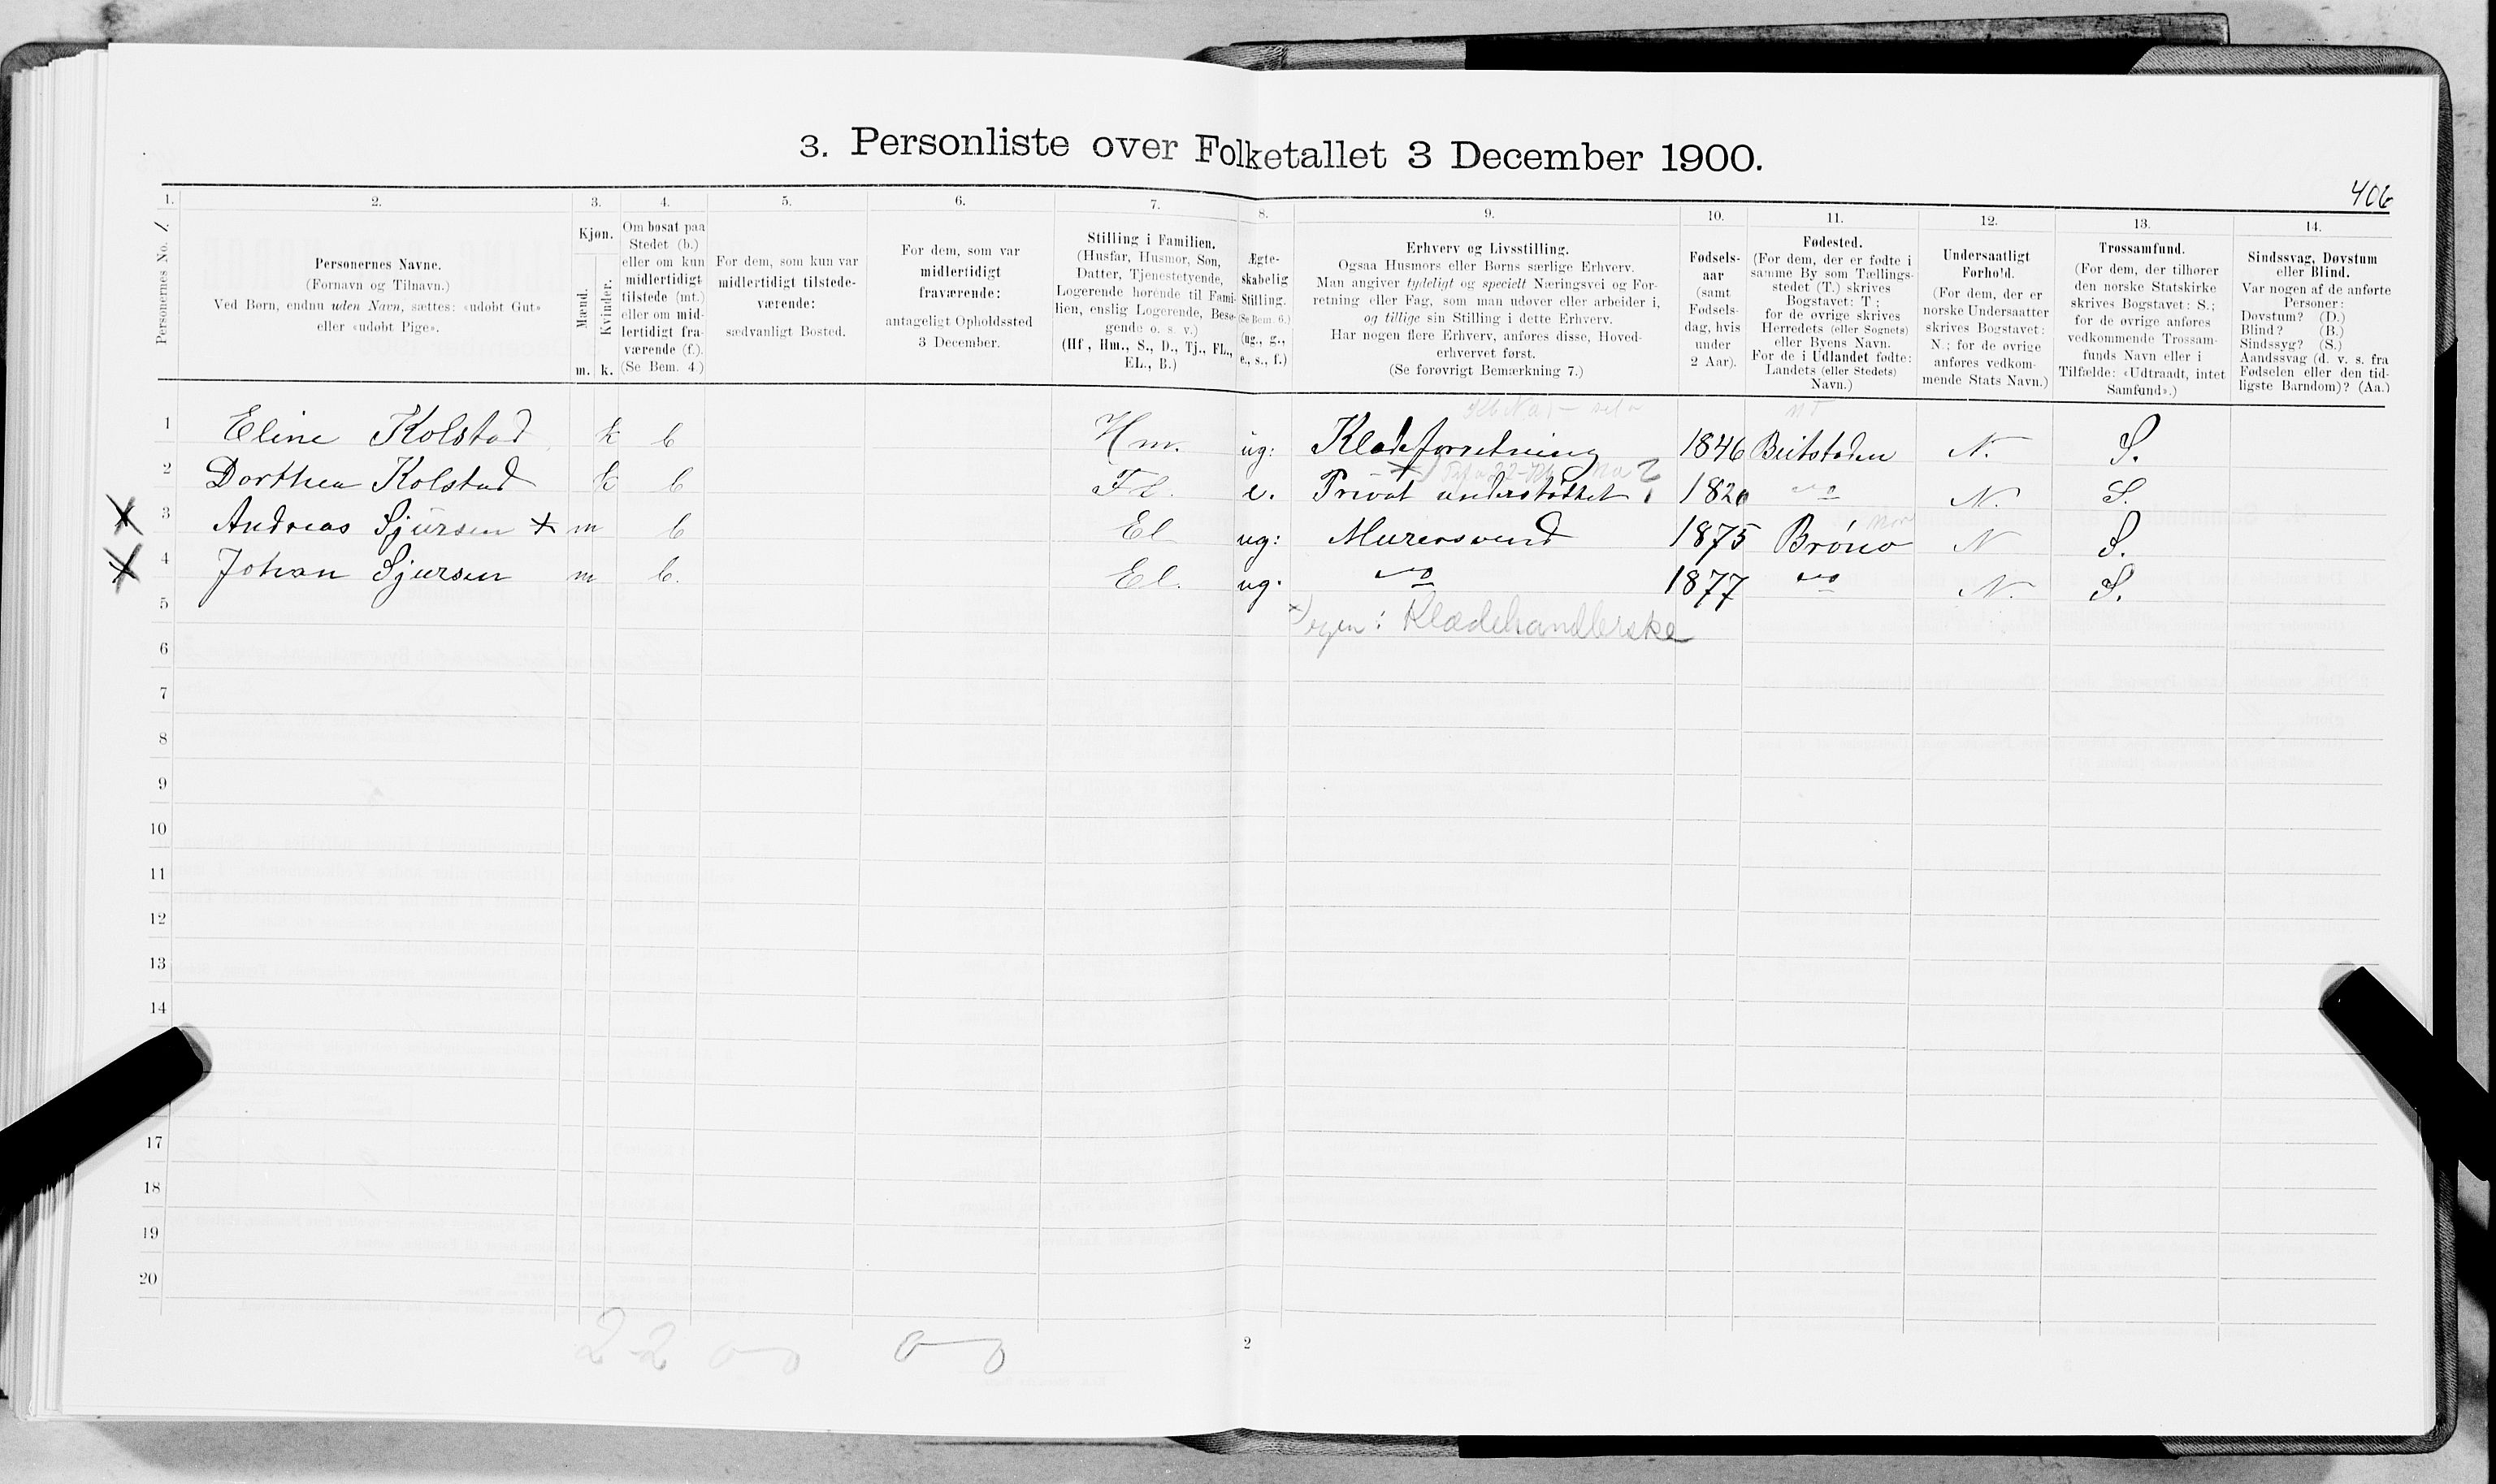 3. Personliste over Folketallet 3 December 1900.
406
1. 2. 3. 4. 5. 6. 7. 8. 9. 10. 11. 12. 13. 14.
Personernes No. 1.
Personernes Navne.
(Fornavn og Tilnavn.)
Ved Børn, endnu uden Navn, sættes: «udøbt Gut»
eller «udøbt Pige».
Kjøn.
Mænd.
Kvinder.
m. k.
Om bosat paa
Stedet (b.)
eller om kun
midlertidigt
tilstede (mt.)
eller om mid-
lertidigt fra-
værende (f.).
(Se Bem. 4.)
For dem, som kun var
midlertidigt tilstede-
værende:
sædvanligt Bosted.
For dem, som var
midlertidigt
fraværende:
antageligt Opholdssted
3 December.
Stilling i Familien.
(Husfar, Husmor, Søn,
Datter, Tjenestetyende,
Logerende hørende til Fami-
lien, enslig Logerende, Besø-
gende o. s. v.)
(Hf., Hm., S., D., Tj., FL.,
EL., B.)
Ægte-
skabelig
Stilling.
(Se Bem. 6.)
(ug., g.,
e., s., f.)
Erhverv og Livsstilling.
Ogsaa Husmors eller Børns særlige Erhverv.
Man angiver tydeligt og specielt Næringsvei og For-
retning eller Fag, som man udøver eller arbeider i,
og tillige sin Stilling i dette Erhverv.
Har nogen flere Erhverv, anføres disse, Hoved-
erhvervet først.
(Se forøvrigt Bemærkning 7.)
Fødsels-
aar
(samt
Fødsels-
dag, hvis
under
2 Aar).
Fødested.
(For dem, der er fødte i
samme By som Tællings-
stedet (T.) skrives
Bogstavet: T;
for de øvrige skrives
Herredets (eller Sognets)
eller Byens Navn.
For de i Udlandet fødte:
Landets (eller Stedets)
Navn.)
Undersaatligt
Forhold.
(For dem, der er
norske Undersaatter
skrives Bogstavet:
N.; for de øvrige
anføres vedkom-
mende Stats Navn.)
Trossamfund.
(For dem, der tilhører
den norske Statskirke
skrives Bogstavet: S.;
for de øvrige anføres
vedkommende Trossam-
funds Navn eller i
Tilfælde: «Udtraadt, intet
Samfund».)
Sindssvag, Døvstum
eller Blind.
Var nogen af de anførte
Personer:
Døvstum? (D.)
Blind? (B.)
Sindssyg? (S.)
Aandssvag (d. v. s. fra
Fødselen eller den tid-
ligste Barndom)? (Aa.)
1 Eline Kolstad k b Hm. ug: Klædeforretning 1846 Beitstaden N. S.
2 Dorthea Kolstad k b Fl. e. Privat understøttet 1820 " N. S.
3 Andreas Sjursen m b El ug: Murersvend 1875 Brønø N S.
4 Johan Sjursen m b. El. ug. " 1877 " N. S.
5
egen: Klædehandlerske
6
7
8
9
10
11
12
13
14
17
18
19
20
2 2
2